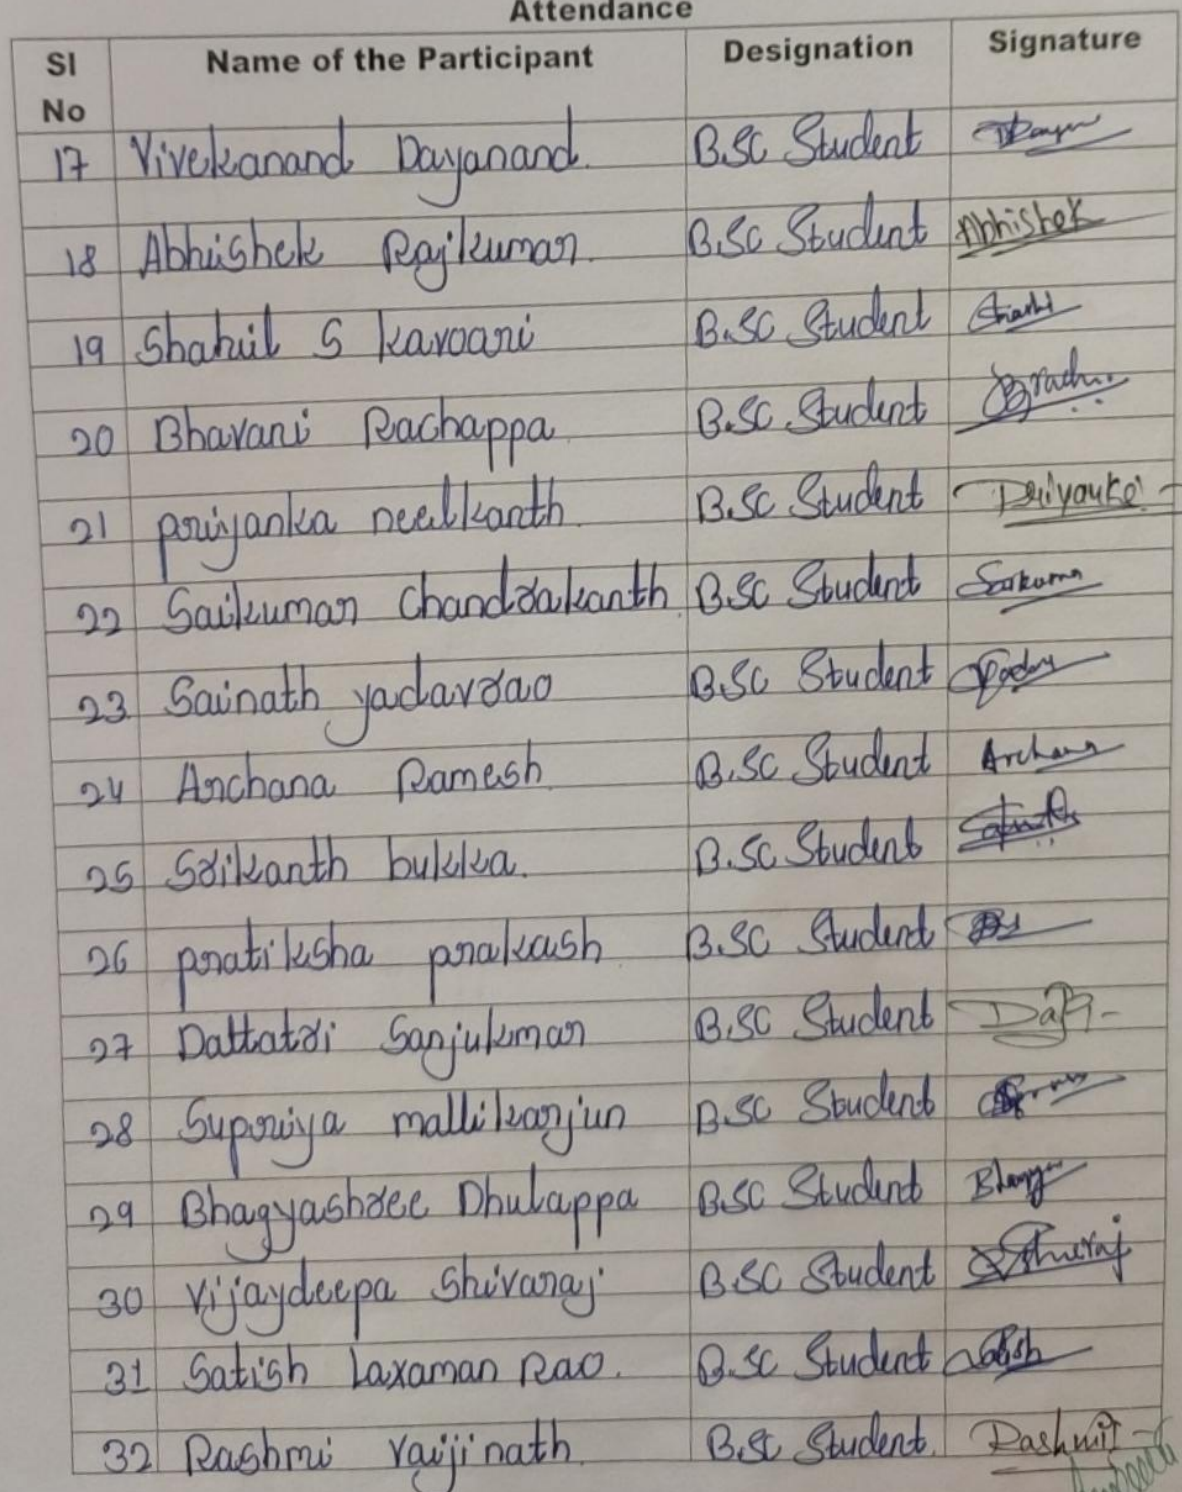 Attendance
Sl No Name of the Participant Designation Signature
17 Vivekanand Dayanand. B.Sc Student
18 Abhishek Rajkumar. B.Sc Student Abhishek
19 Shahil S karoani B.Sc Student
20 Bhavani Rachappa B.Sc Student
21 priyanka neelkanth B.Sc Student Priyanka
22 Saikumar Chandrakanth B.Sc Student Saikumar
23 Sainath yadavrao B.Sc Student
24 Archana Ramesh B.Sc Student Archana
25 Srikanth bukka. B.Sc Student
26 pratiksha prakash B.Sc Student
27 Dattatri Sanjukumar B.Sc Student
28 Supriya mallikarjun B.Sc Student
29 Bhagyashree Dhulappa B.Sc Student
30 Vijaydeepa Shivaraj B.Sc Student
31 Satish Laxaman Rao. B.Sc Student
32 Rashmi vaijinath B.Sc Student. Rashmi